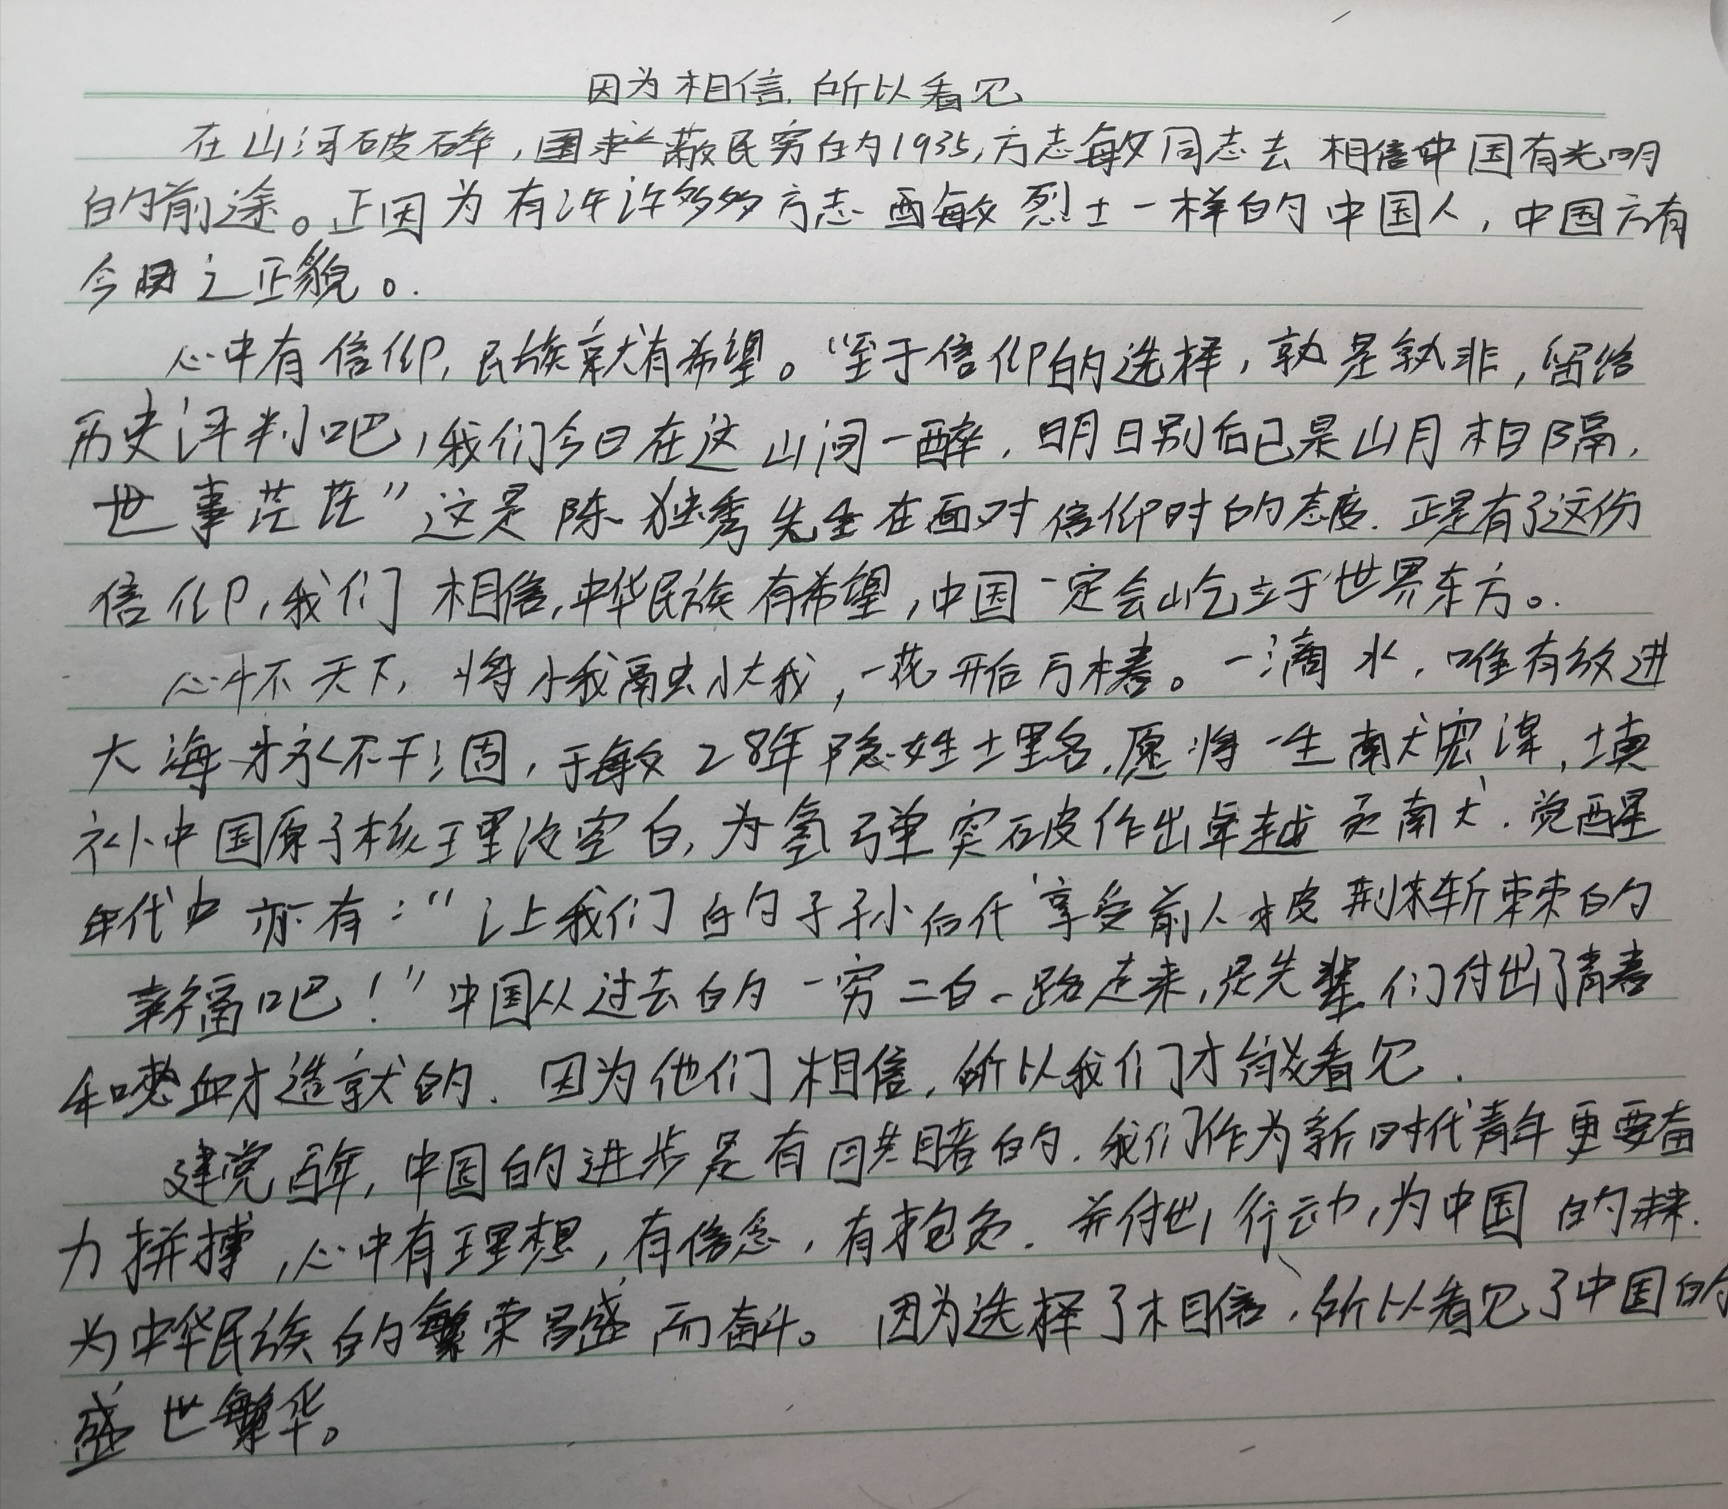 因为相信,所以看见
在山河破碎,国敝民穷的1935,方志敏同志去相信中国有光明
的前途。正因为有许许多多方志敏烈士一样的中国人,中国方有
今日之正貌。
心中有信仰,民族就有希望。“至于信仰的选择,孰是孰非,留给
历史评判吧,我们今日在这山间一醉,明日别后已是山月相隔,
世事茫茫”这是陈独秀先生在面对信仰时的态度.正是有了这份
信仰,我们相信,中华民族有希望,中国一定会屹立于世界东方。
心怀天下,将小我融大我,一花开后万椿。一滴水,唯有放进
大海才永不干涸,于敏28年隐姓埋名,愿将一生献宏谋,填
补中国原子核理论空白,为氢弹突破作出卓越贡献.觉醒
年代中亦有:“让我们的子子孙后代享受前人披荆斩棘的
幸福吧!”中国从过去的一穷二白一路走来,是先辈们付出了青春
和噫血才造就的.因为他们相信,所以我们才能看见.
建党百年,中国的进步是有目共睹的.我们作为新时代青年更要奋
力拼搏,心中有理想,有信念,有抱负.并付出行动,为中国的未来.
为中华民族的繁荣昌盛而奋斗。因为选择了相信,所以看见了中国的
盛世繁华。